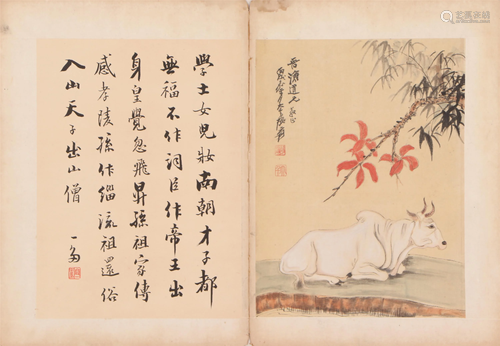 大千張爰
學士女兒妝南朝才子都
無福不作詞臣作帝王出
身皇覺忽飛昇孫祖家傳
感孝陵孫作緇流祖還俗
入山天子出山僧